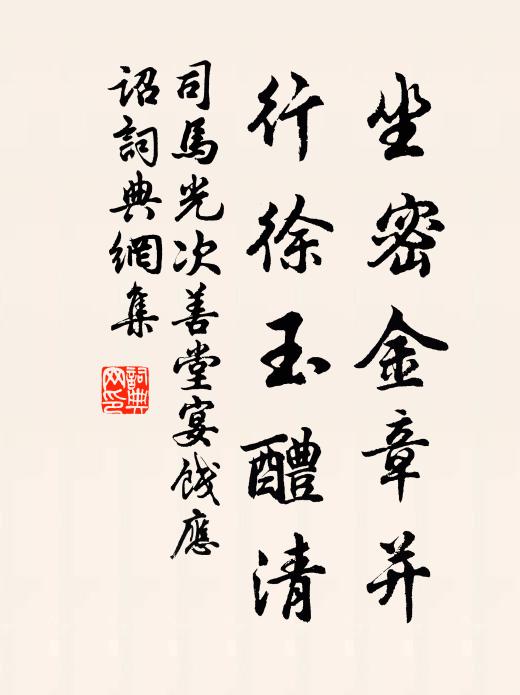 坐密金章并
行徐玉醴清
司馬光次善堂宴餞應
詔詞典網集
詞典
网印